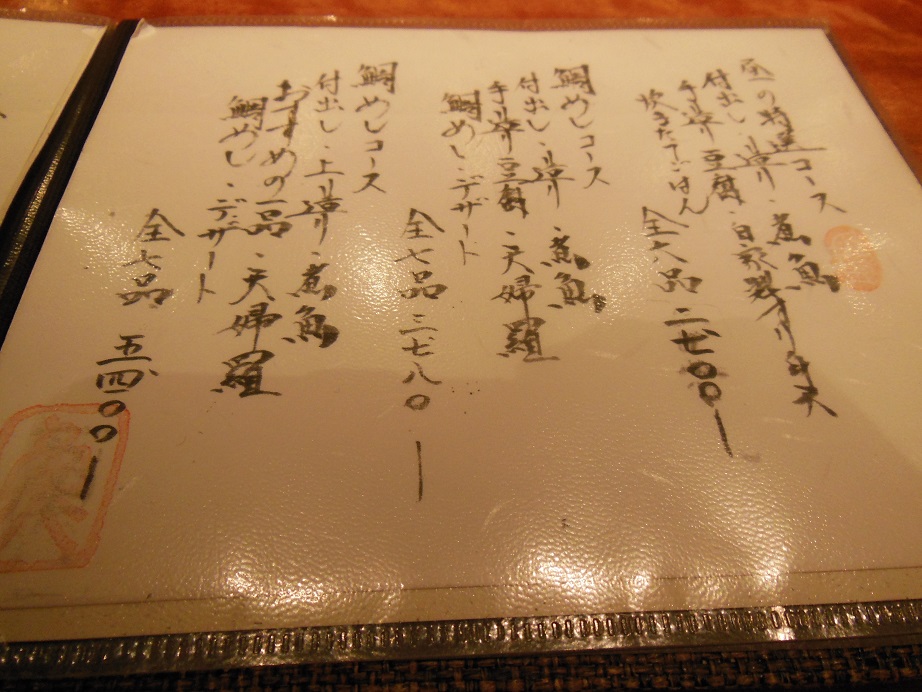 昼の特選コース
付出し・造り・煮魚
手造り豆腐・自家製有り
炊きたてごはん
全六品 二七〇〇ー
鯛めしコース
付出し・造り・煮魚
手造り豆腐・天婦羅
鯛めし・デザート
全七品 三七八〇ー
鯛めしコース
付出し・上造り・煮魚
おすすめの一品・天婦羅
鯛めし・デザート
全七品 五四〇〇ー